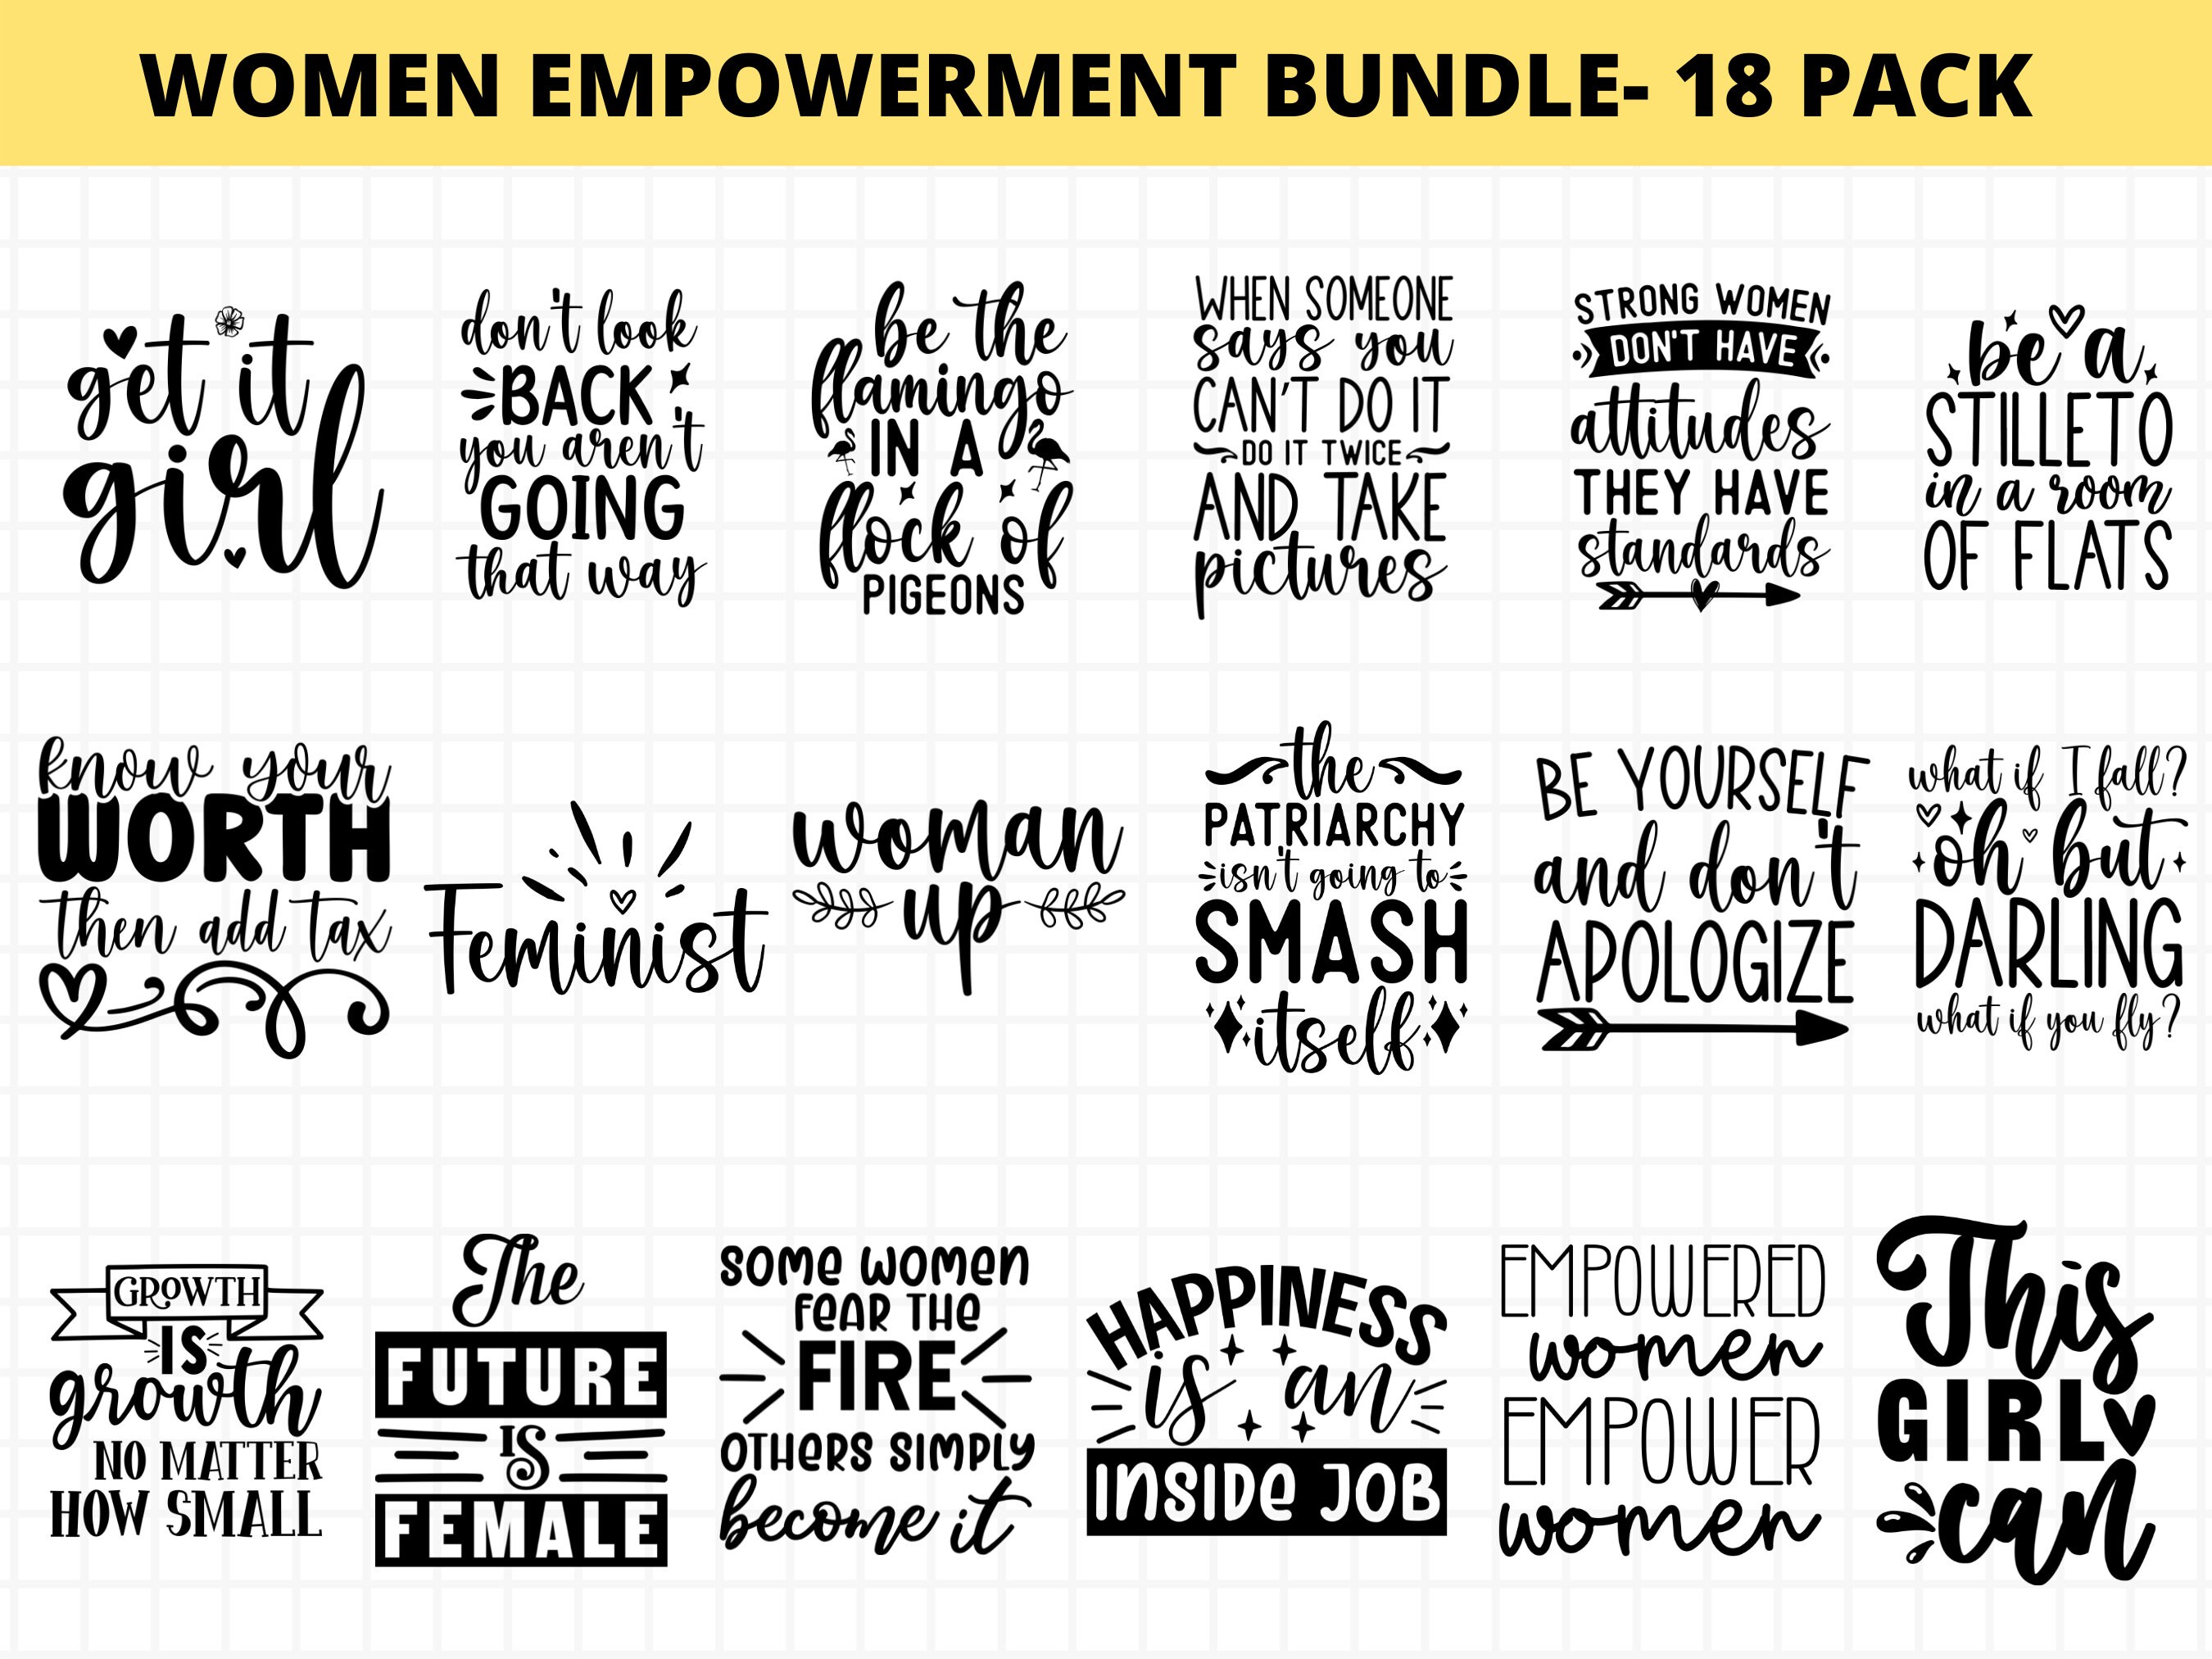 WOMEN EMPOWERMENT BUNDLE- 18 PACK
get it
girl
don't look
BACK
you aren't
GOING
that way
be the
flamingo
IN A
flock of
PIGEONS
WHEN SOMEONE
says you
CAN'T DO IT
DO IT TWICE
AND TAKE
pictures
STRONG WOMEN
DON'T HAVE
attitudes
THEY HAVE
standards
be a
STILLETO
in a room
OF FLATS
know your
WORTH
then add tax
Feminist
woman
up
the
PATRIARCHY
isn't going to
SMASH
itself
BE YOURSELF
and don't
APOLOGIZE
what if I fall?
oh but
DARLING
what if you fly?
GROWTH
IS
growth
NO MATTER
HOW SMALL
The
FUTURE
IS
FEMALE
SOME WOMEN
FEAR THE
FIRE
OTHERS SIMPLY
become it
HAPPINESS
is an
INSIDE JOB
EMPOWERED
women
EMPOWER
women
This
GIRL
can